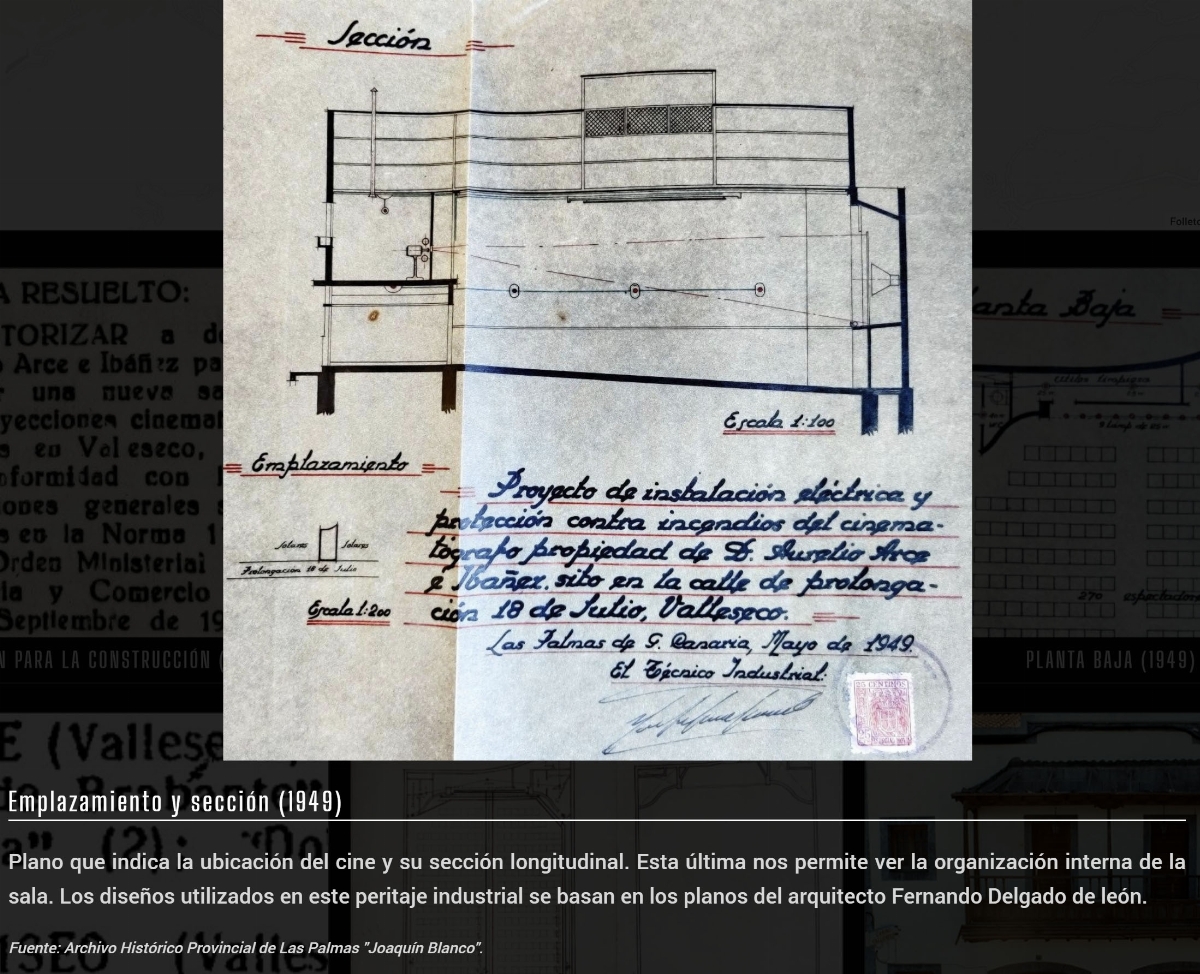 Sección
Folleto
A RESUELTO:
TORIZAR a d
Arce e Ibáñez pa
una nueva sa
yecciones cinemat
s en Valleseco,
nformidad con l
iones generales
s en la Norma 1
Orden Ministerial
ia y Comercio
Septiembre de 19
anta Baja
útiles limpieza
Escala 1:100
Emplazamiento
Solares Solares
Prolongación 18 de Julio
Escala 1:200
Proyecto de instalación eléctrica y
protección contra incendios del cinema-
tógrafo propiedad de D. Aurelio Arce
e Ibañez, sito en la calle de prolonga-
ción 18 de Julio, Valleseco.
Las Palmas de G. Canaria, Mayo de 1949.
El Técnico Industrial:
270 espectadores
N PARA LA CONSTRUCCIÓN (
PLANTA BAJA (1949)
E (Vallese
Emplazamiento y sección (1949)
Plano que indica la ubicación del cine y su sección longitudinal. Esta última nos permite ver la organización interna de la
sala. Los diseños utilizados en este peritaje industrial se basan en los planos del arquitecto Fernando Delgado de león.
Fuente: Archivo Histórico Provincial de Las Palmas "Joaquín Blanco".